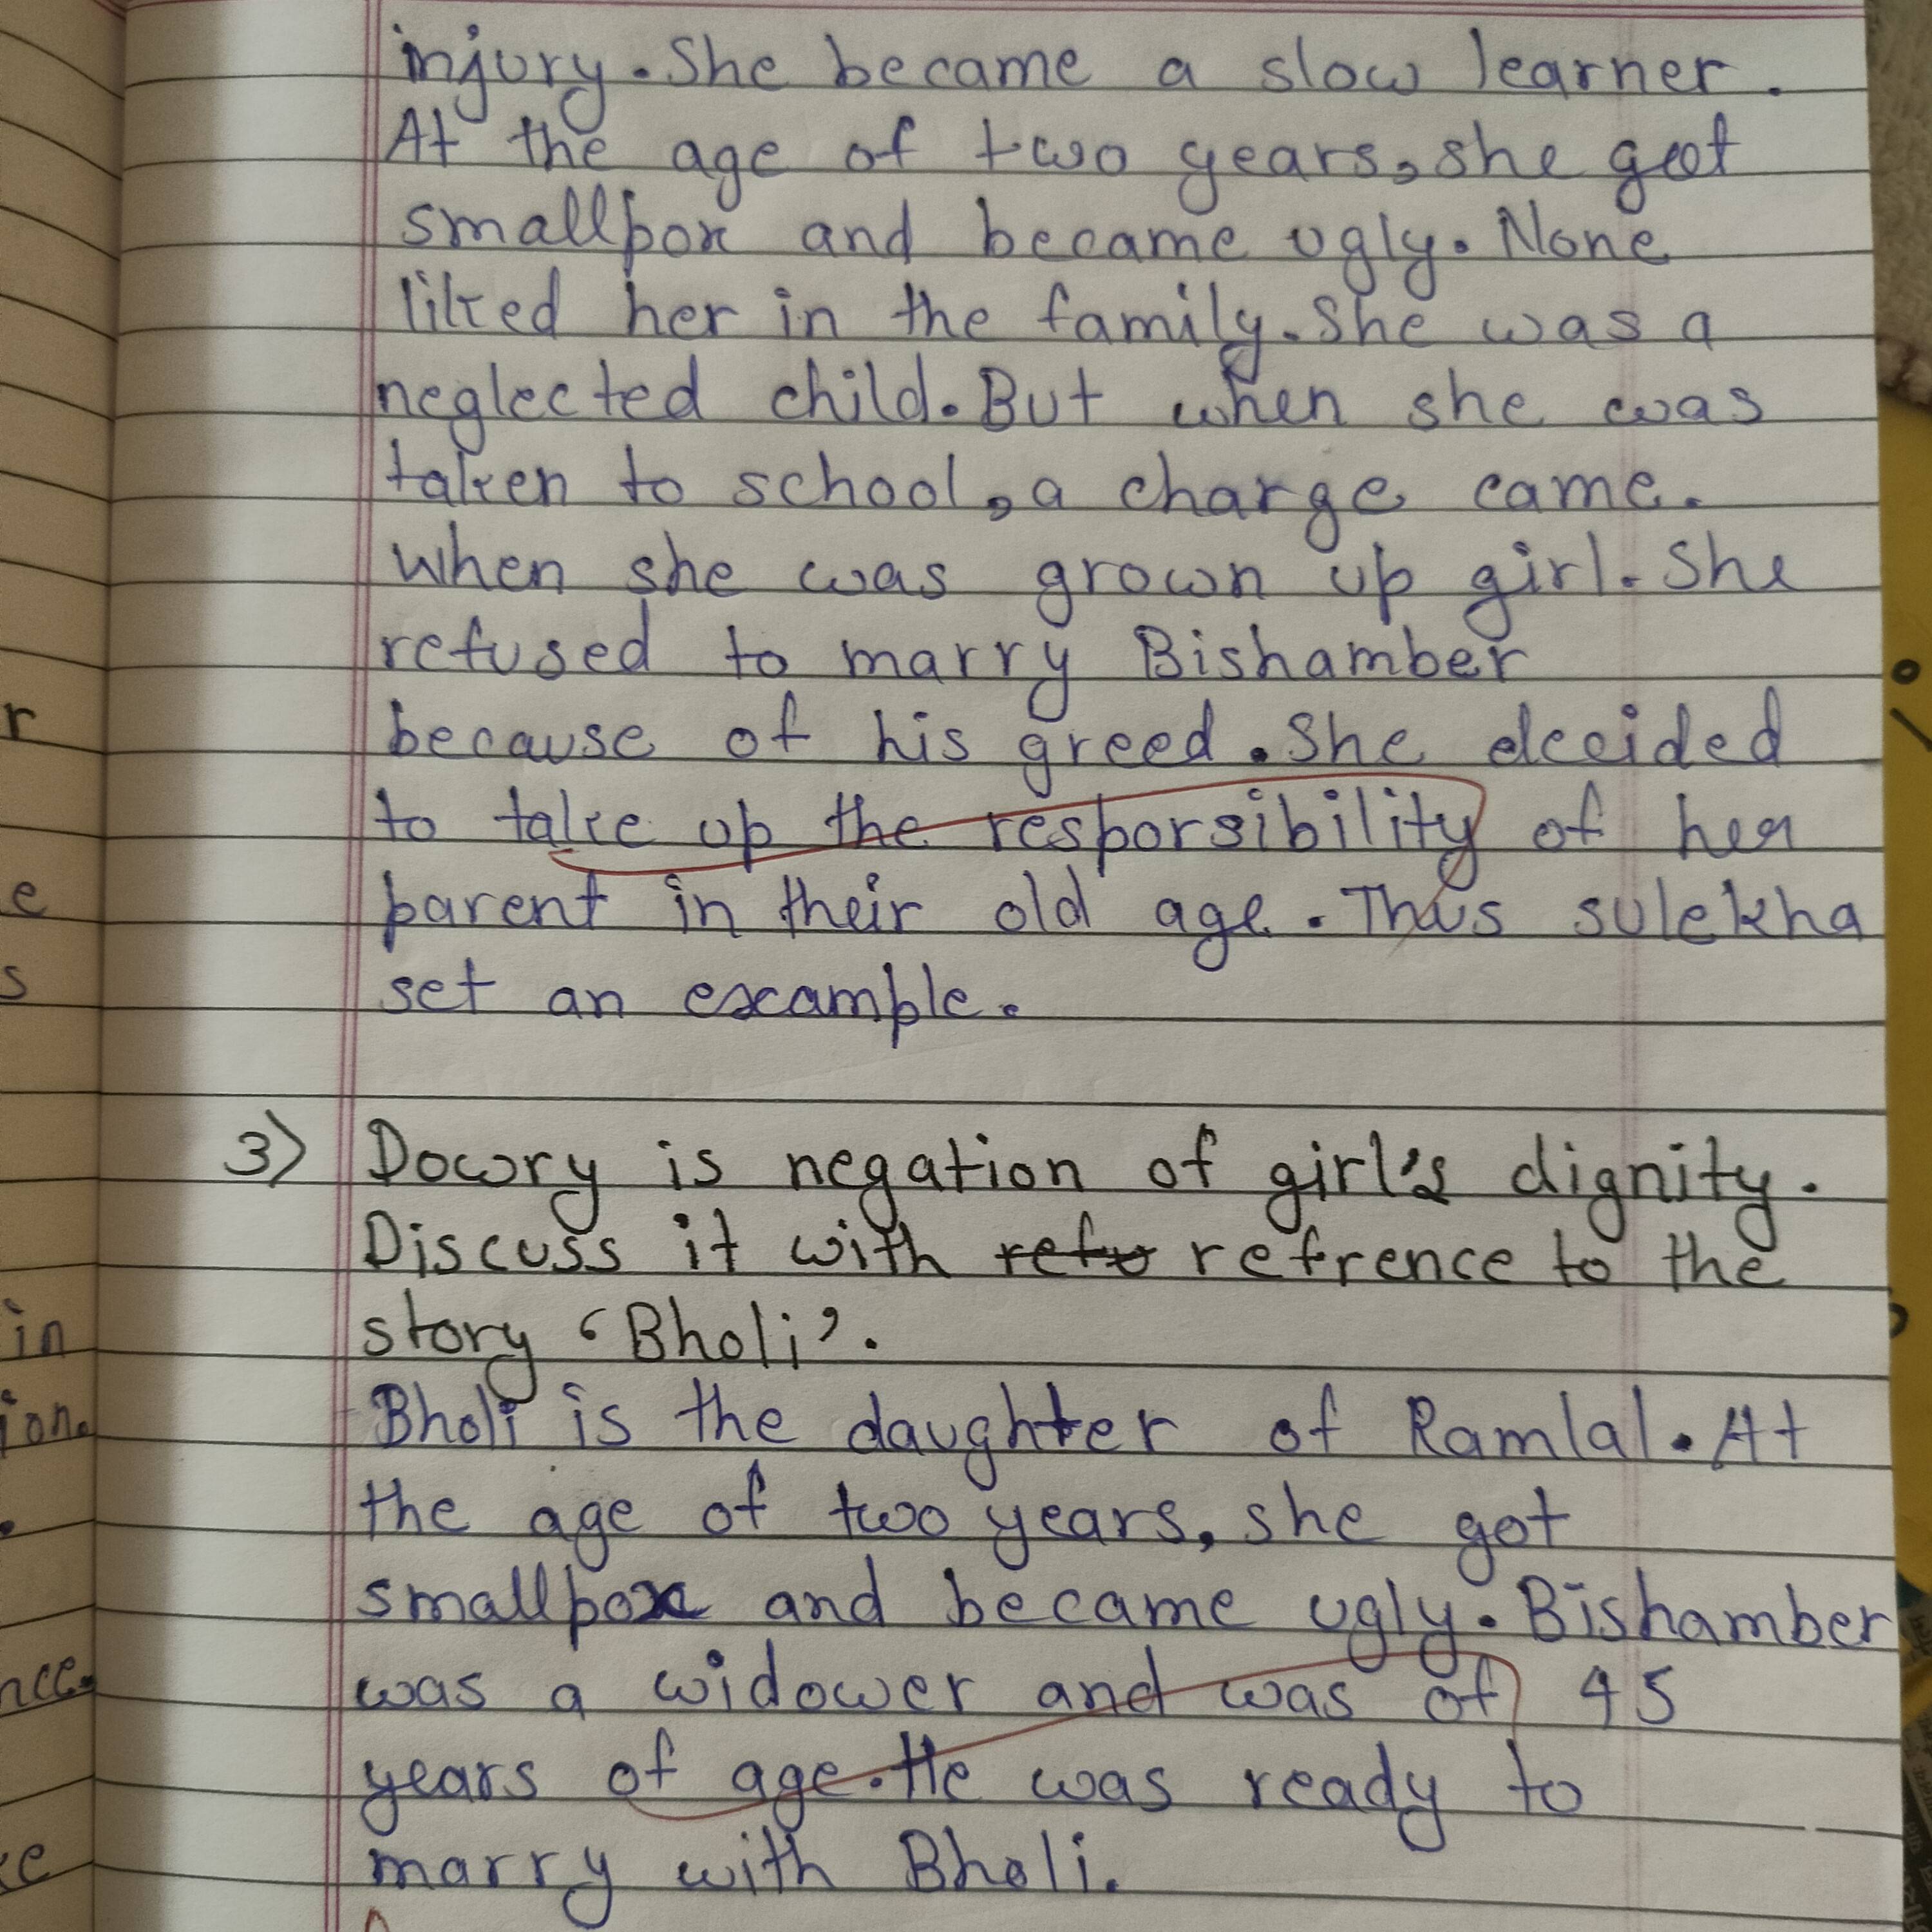 injury. She became a slow learner.
At the age of two years, she got
smallpox and became ugly. None
liked her in the family. She was a
neglected child. But when she was
taken to school, a charge came.
When she was grown up girl. She
refused to marry Bishamber
because of his greed. She decided
to take up the resporsibility of her
parent in their old age. Thus sulekha
set an example.
3) Dowry is negation of girl's dignity.
Discuss it with refrence to the
story 'Bholi'.
Bholi is the daughter of Ramlal. At
the age of two years, she got
smallpox and became ugly. Bishamber
was a widower and was of 45
years of age. He was ready to
marry with Bholi.
r
e
s
in
ion.
nce.